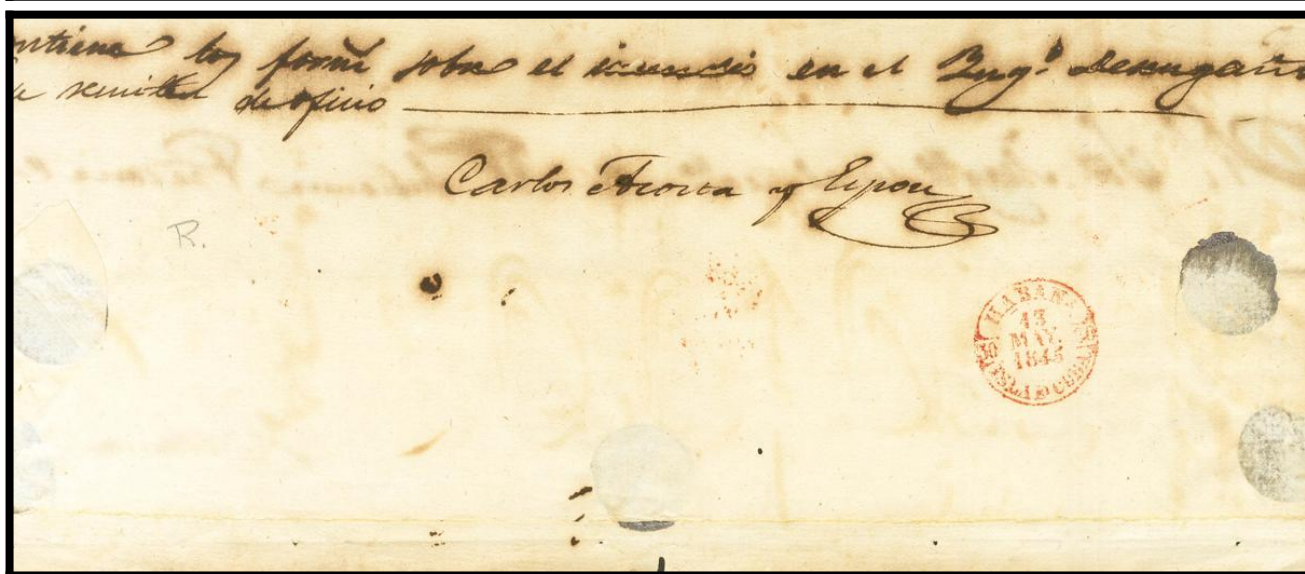 ntiene los form sobre el incendio en el Yng.º Desengaño
se remiten de oficio
Carlos Acosta y
R.
HABANA
13
MAY.
1845
ISLA D CUBA